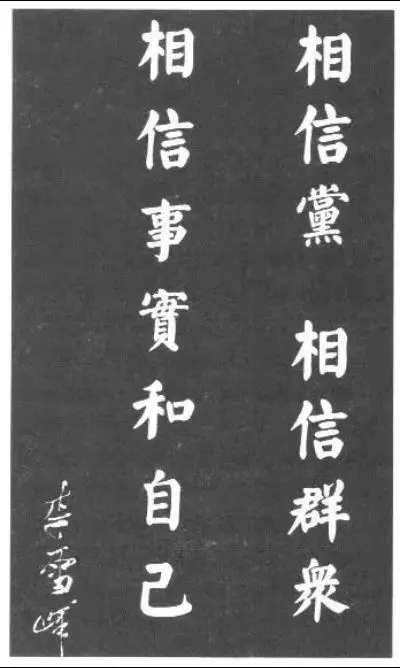 相信黨 相信群衆
相信事實和自己
李雪峰